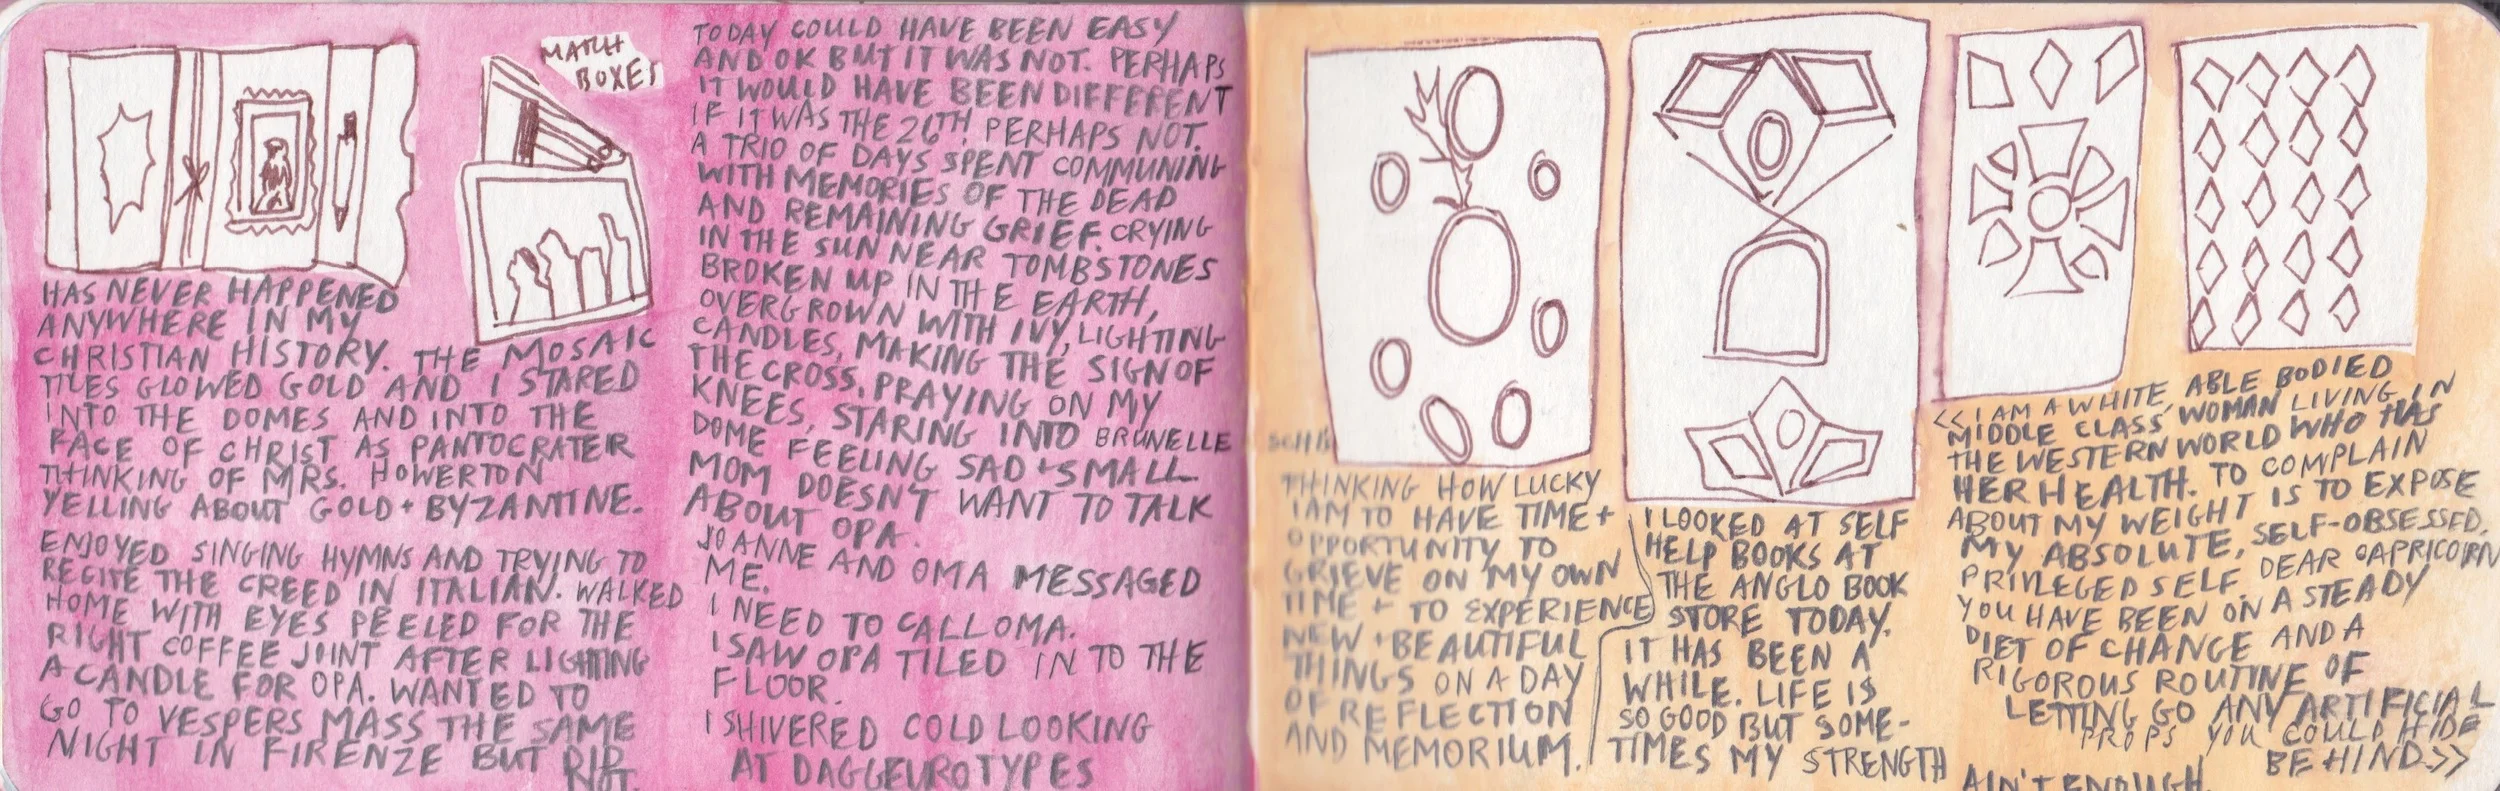 MATCH
BOXES
HAS NEVER HAPPENED
ANYWHERE IN MY
CHRISTIAN HISTORY. THE MOSAIC
TILES GLOWED GOLD AND I STARED
INTO THE DOMES AND INTO THE
FACE OF CHRIST AS PANTOCRATER
THINKING OF MRS. HOWERTON
YELLING ABOUT GOLD + BYZANTINE.
ENJOYED SINGING HYMNS AND TRYING TO
RECITE THE CREED IN ITALIAN. WALKED
HOME WITH EYES PEELED FOR THE
RIGHT COFFEE JOINT AFTER LIGHTING
A CANDLE FOR OPA. WANTED TO
GO TO VESPERS MASS THE SAME
NIGHT IN FIRENZE BUT DID
NOT.
TODAY COULD HAVE BEEN EASY
AND OK BUT IT WAS NOT. PERHAPS
IT WOULD HAVE BEEN DIFFERENT
IF IT WAS THE 26TH. PERHAPS NOT.
A TRIO OF DAYS SPENT COMMUNING
WITH MEMORIES OF THE DEAD
AND REMAINING GRIEF. CRYING
IN THE SUN NEAR TOMBSTONES
BROKEN UP IN THE EARTH,
OVERGROWN WITH IVY, LIGHTING
CANDLES, MAKING THE SIGN OF
THE CROSS, PRAYING ON MY
KNEES, STARING INTO BRUNELLE
SCHI
DOME FEELING SAD + SMALL
MOM DOESN'T WANT TO TALK
ABOUT OPA.
JOANNE AND OMA MESSAGED
ME.
I NEED TO CALL OMA.
I SAW OPA TILED IN TO THE
FLOOR.
I SHIVERED COLD LOOKING
AT DAGGEUROTYPES
THINKING HOW LUCKY
I AM TO HAVE TIME +
OPPORTUNITY TO
GRIEVE ON MY OWN
TIME + TO EXPERIENCE
NEW + BEAUTIFUL
THINGS ON A DAY
OF REFLECTION
AND MEMORIUM.
I LOOKED AT SELF
HELP BOOKS AT
THE ANGLO BOOK
STORE TODAY.
IT HAS BEEN A
WHILE. LIFE IS
SO GOOD BUT SOME-
TIMES MY STRENGTH
AIN'T ENOUGH.
<<I AM A WHITE, ABLE BODIED
MIDDLE CLASS WOMAN LIVING IN
THE WESTERN WORLD WHO HAS
HER HEALTH. TO COMPLAIN
ABOUT MY WEIGHT IS TO EXPOSE
MY ABSOLUTE, SELF-OBSESSED,
PRIVLEGED SELF. DEAR CAPRICORN
YOU HAVE BEEN ON A STEADY
DIET OF CHANGE AND A
RIGOROUS ROUTINE OF
LETTING GO ANY ARTIFICIAL
PROPS YOU COULD HIDE
BEHIND>>